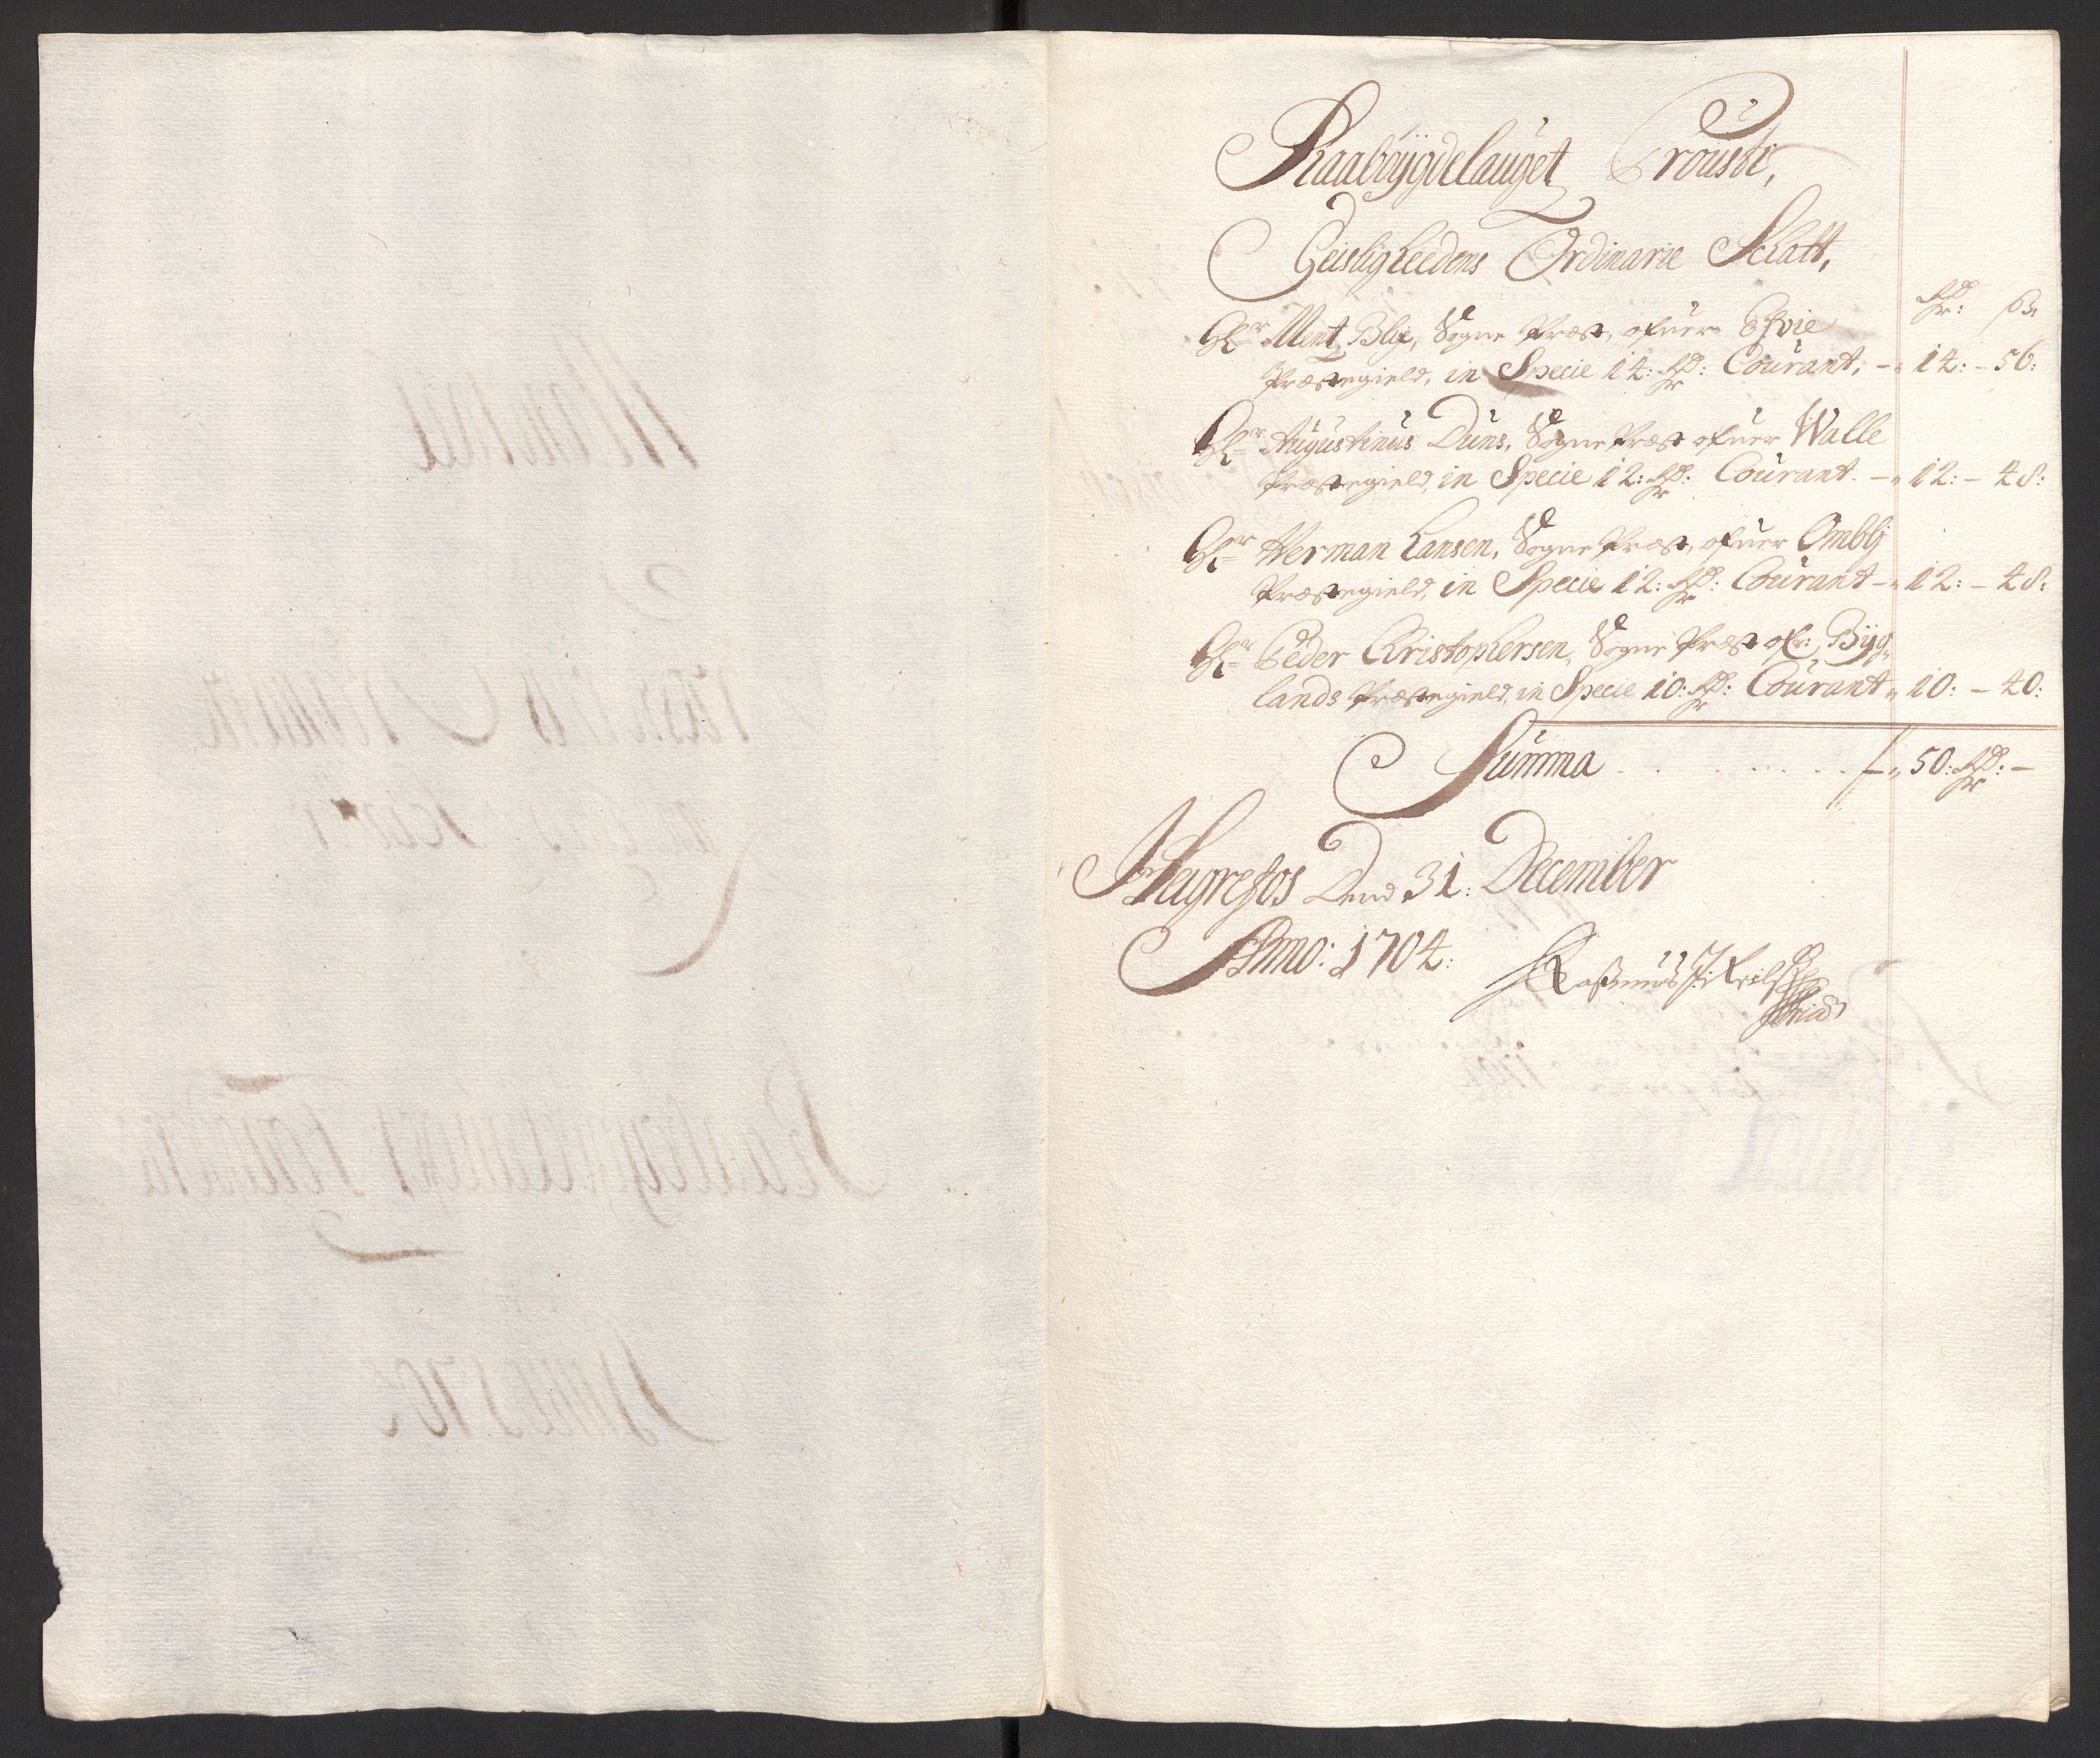 Raabøÿgdelauget Proustie,
Geistligheedens Ordinarie Schatt,
Rdr: ß
Hr Ment Blix, Sogne Præst, ofuer Efvie
Præstegield, in Specie 14: Rdr: Courant, - 14: - 56:
Hr Augustinus Duns, Sogne Præst ofuer Walle
Præstegield, in Specie 12: Rdr: Courant - 12: - 48:
Hr Herman Hansen, Sogne Præst, ofuer Omblj
Præstegield, in Specie 12: Rdr: Courant - 12: - 48:
Hr Peder Christophersen, Sogne Præst ofr: Bÿg-
lands Præstegield, in Specie 10: Rdr: Courant 10: - 40:
Summa - 50: Rdr: -
Hegrefos Dend 31: December
Anno: 1704:
Rasmus